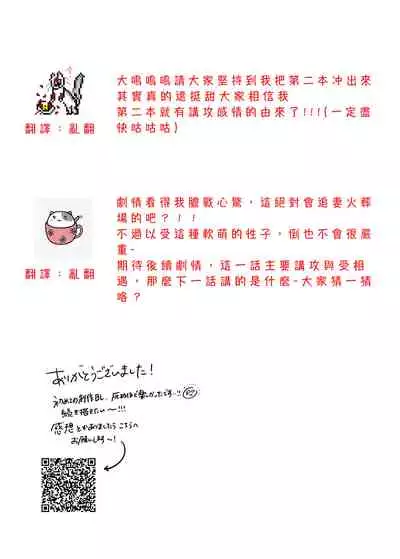 大嗚嗚嗚請大家堅持到我把第二本冲出來
其實真的還挺甜大家相信我
第二本就有講攻感情的由來了!!!(一定盡
快咕咕咕)
翻譯：亂翻
劇情看得我膽戰心驚，這絕對會追妻火葬
場的吧？！！
不過以受這種軟萌的性子，倒也不會很嚴
重-
期待後續劇情，這一話主要講攻與受相
遇，那麼下一話講的是什麼-大家猜一猜
咯？
翻譯：亂翻
ありがとうございました！
初めての創作BL、
続き描きたい〜!!!
感想とかありましたらこちらへ
お願いします〜！